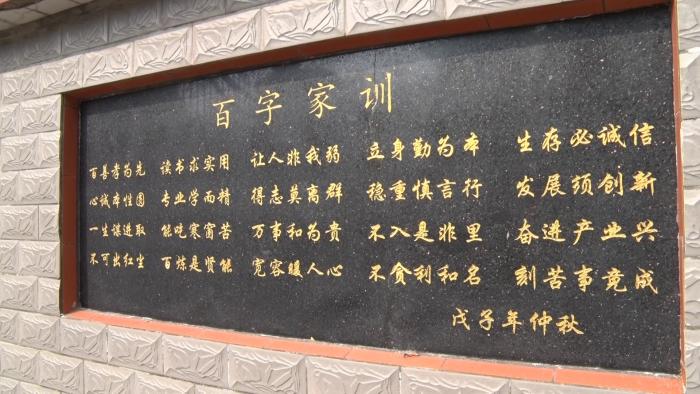 百字家训
百善孝为先 读书求实用 让人非我弱 立身勤为本 生存必诚信
心诚本性圆 专业学而精 得志莫离群 稳重慎言行 发展须创新
一生谋进取 能吃寒窗苦 万事和为贵 不入是非里 奋进产业兴
不可出红尘 百炼是贤能 宽容暖人心 不贪利和名 刻苦事竟成
戊子年仲秋